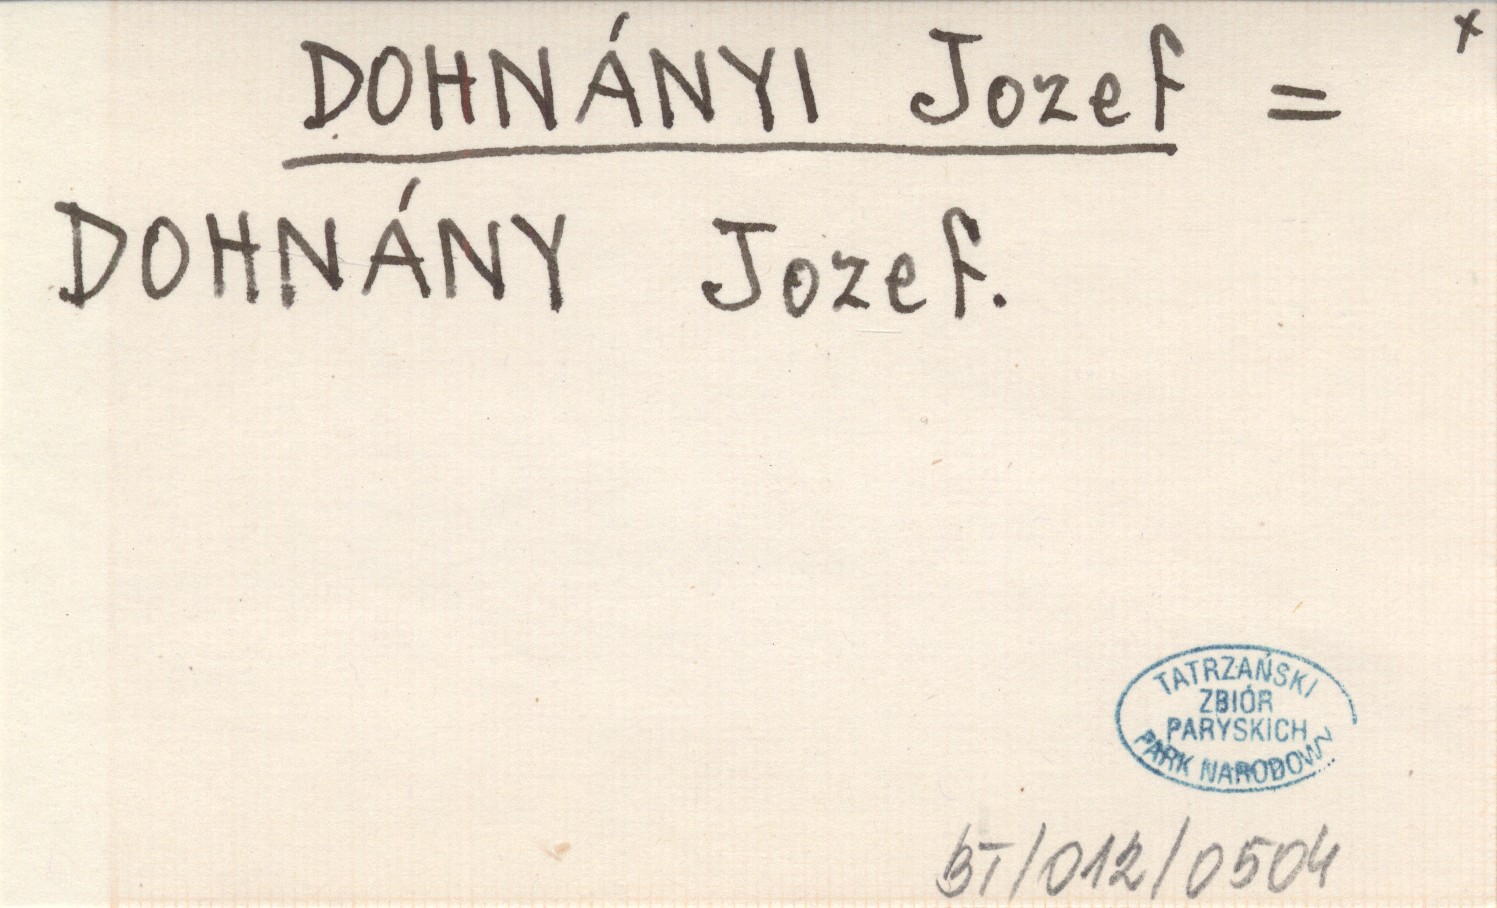 x
DOHNÁNYI Jozef =
DOHNÁNY Jozef.
TATRZAŃSKI
ZBIÓR
PARYSKICH
PARK NARODOWY
BT/012/0504